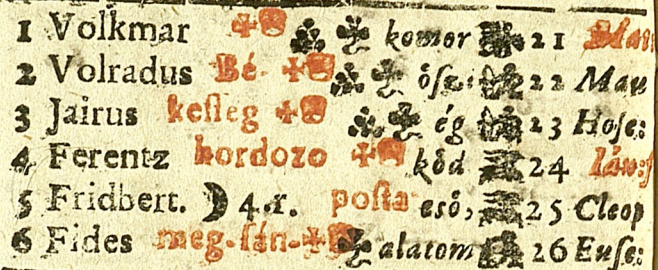 1 Volkmar komor 21
2 Volradus Bé- ősz: 22 Mau
3 Jairus kesseg ég 23 Hose:
4 Ferentz hordozo kőd 24
5 Fridbert. ☽ 4.r. posta eső, 25 Cleop
6 Fides meg-sán- alatom 26 Euse: